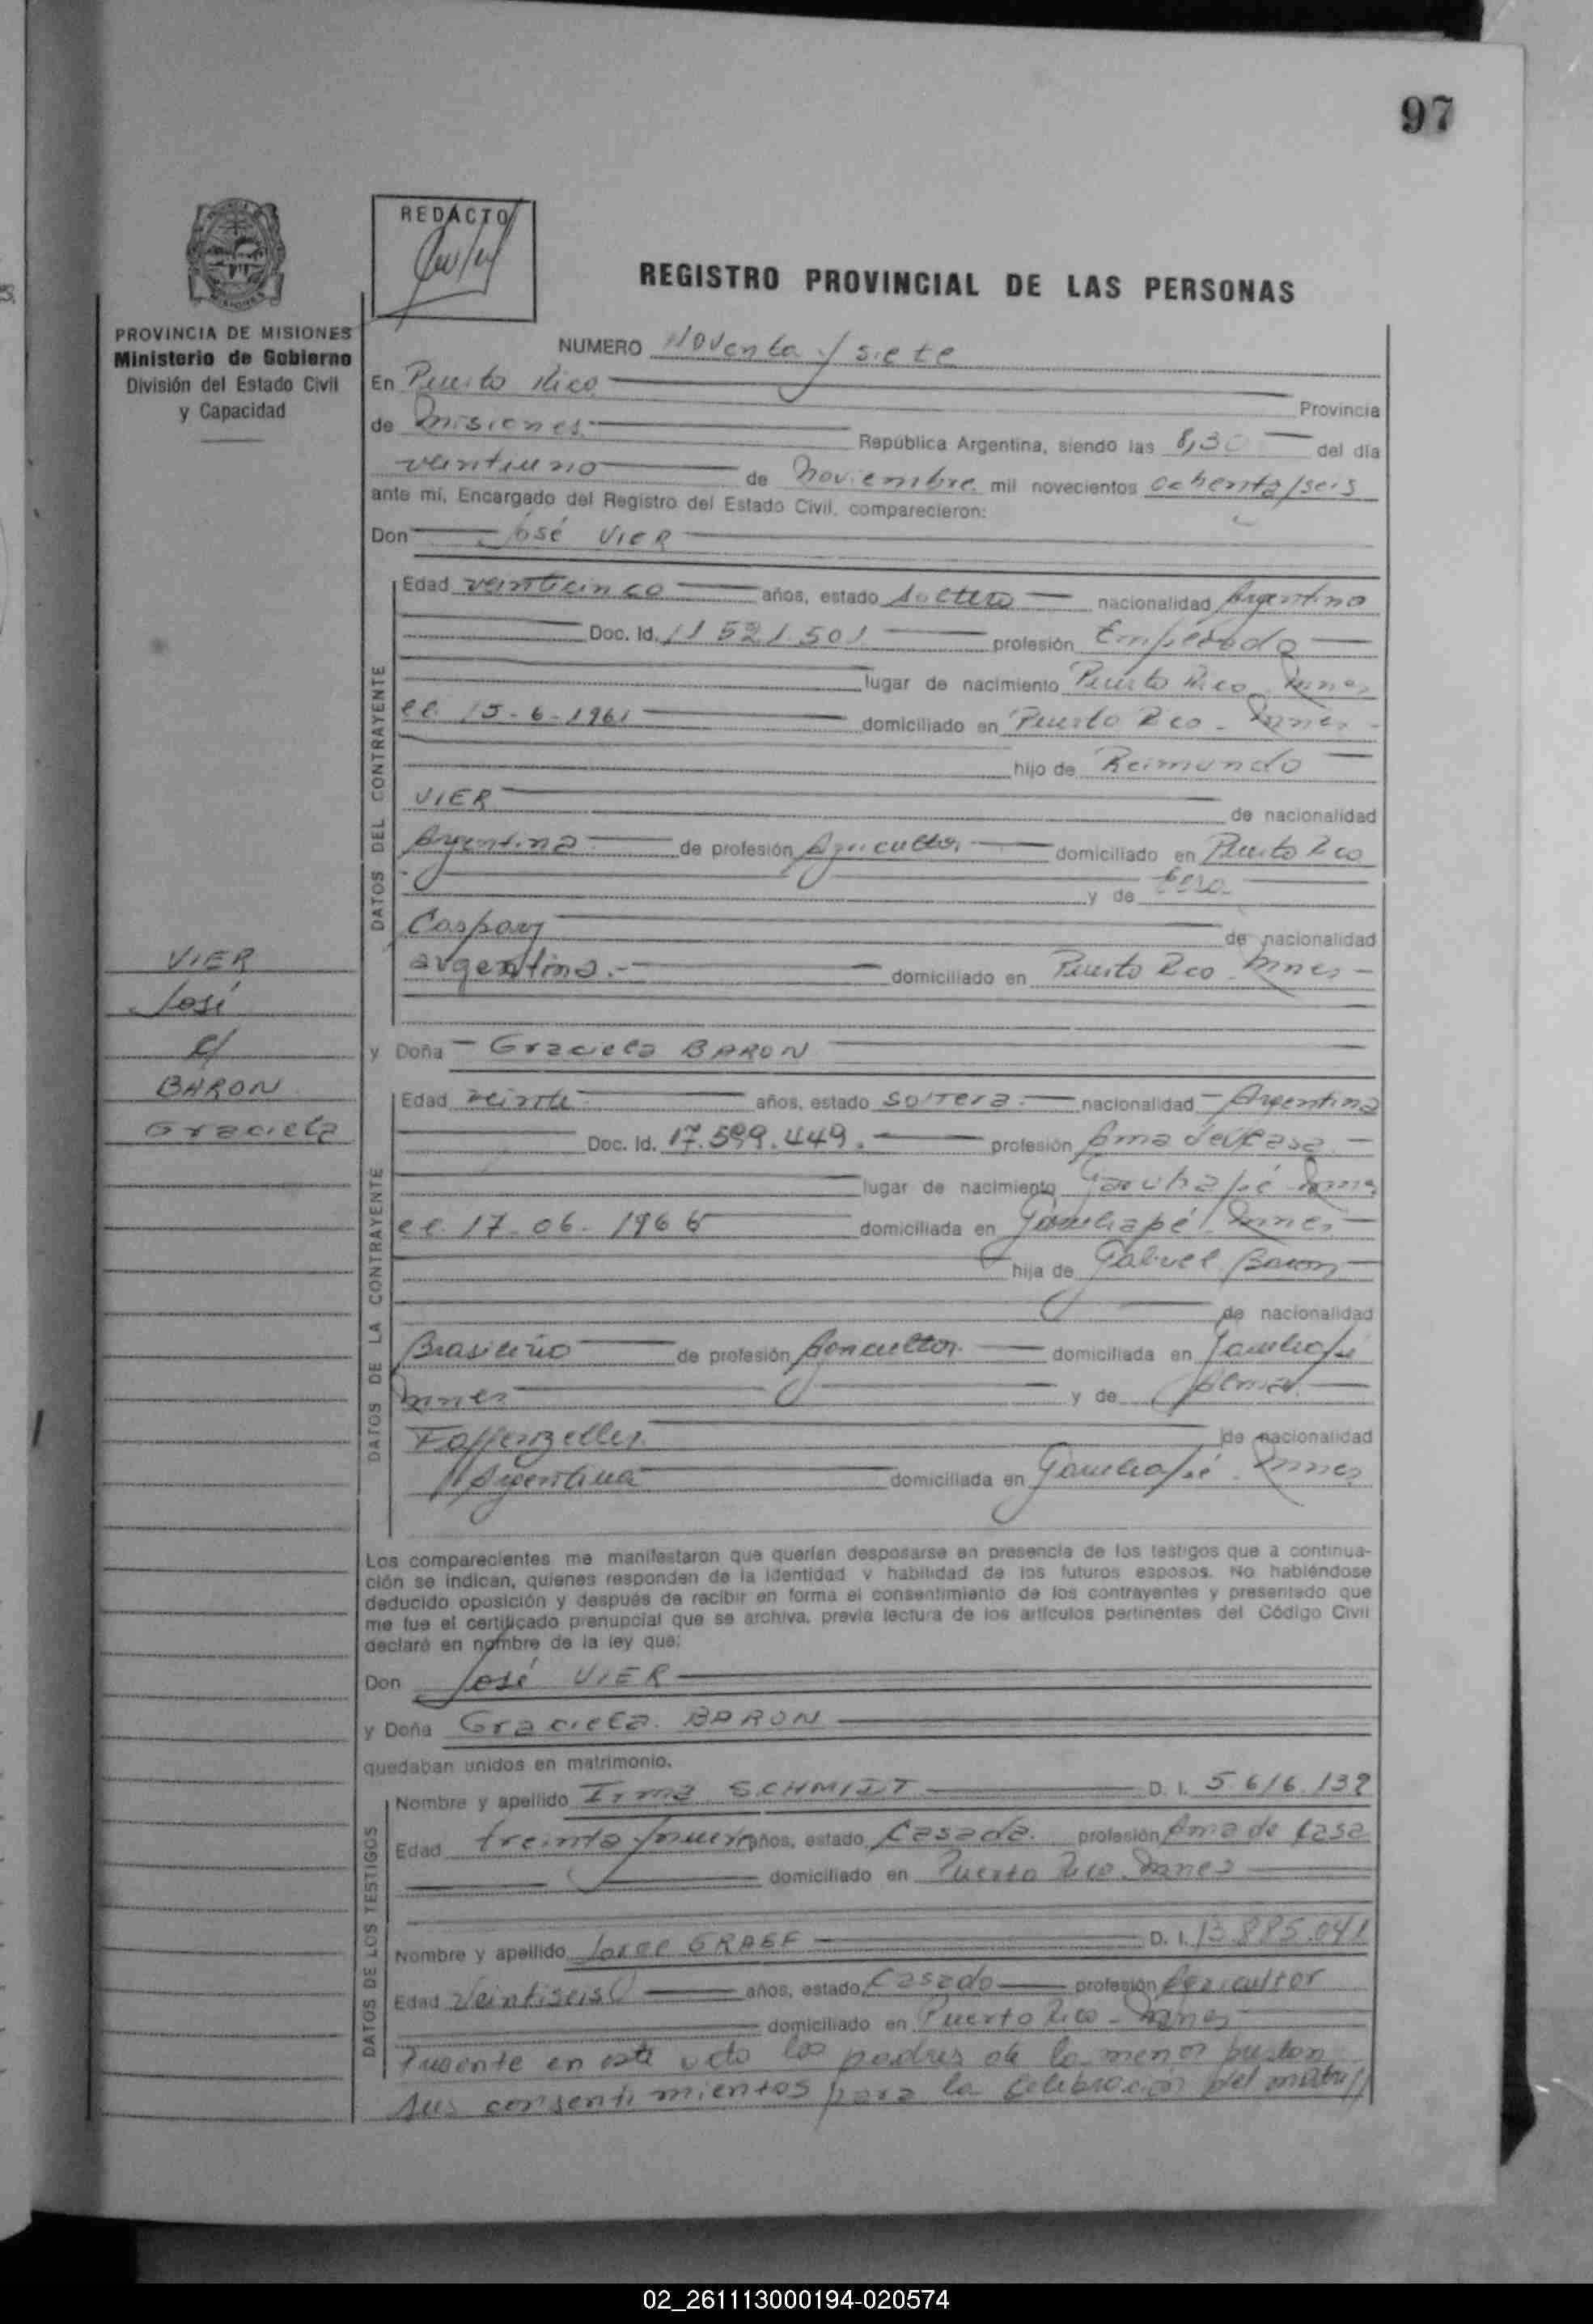 97
REDACTO
REGISTRO PROVINCIAL DE LAS PERSONAS
PROVINCIA DE MISIONES
Ministerio de Gobierno
División del Estado Civil
y Capacidad
NUMERO Noventa y siete
En Puerto Rico Provincia
de Misiones República Argentina, siendo las 8,30 del día
veintiuno de Noviembre mil novecientos ochenta/seis
ante mí, Encargado del Registro del Estado Civil, comparecieron:
Don José VIER
DATOS DEL CONTRAYENTE
Edad veinticinco años, estado soltero nacionalidad Argentino
Doc. Id. 11 521.501 profesión Empleado
lugar de nacimiento Puerto Rico Mnes
el 15-6-1961 domiciliado en Puerto Rico - Mnes
hijo de Reimundo
VIER de nacionalidad
Argentina de profesión Agricultor domiciliado en Puerto Rico
y de
Caspary de nacionalidad
argentina.- domiciliado en Puerto Rico Mnes -
VIER
José
c/
BARON
Graciela
y Doña Graciela BARON
DATOS DE LA CONTRAYENTE
Edad veinte años, estado soltera nacionalidad Argentina
Doc. Id. 17.599.449. profesión Ama de casa
lugar de nacimiento Garuhapé Mnes
el 17-06-1966 domiciliada en Garuhapé Mnes
hija de Gabriel Baron
de nacionalidad
Brasileño de profesión Agricultor domiciliada en Garuhapé
Mnes y de
Faffenzeller de nacionalidad
Argentina domiciliada en Garuhapé Mnes
Los comparecientes me manifestaron que querían desposarse en presencia de los testigos que a continua-
ción se indican, quienes responden de la identidad y habilidad de los futuros esposos. No habiéndose
deducido oposición y después de recibir en forma el consentimiento de los contrayentes y presentado que
me fue el certificado prenupcial que se archiva, previa lectura de los artículos pertinentes del Código Civil
declaré en nombre de la ley que:
Don José VIER
y Doña Graciela BARON
quedaban unidos en matrimonio.
DATOS DE LOS TESTIGOS
Nombre y apellido Irma SCHMIDT D. I. 5.616.139
Edad treinta y nueve años, estado Casada profesión Ama de casa
domiciliado en Puerto Rico Mnes
Nombre y apellido Jorge GRAEF D. I. 13.885.041
Edad Veintiseis años, estado Casado profesión Agricultor
domiciliado en Puerto Rico - Mnes
Presente en este acto los padres de la menor prestan
sus consentimientos para la celebración del
02_261113000194-020574